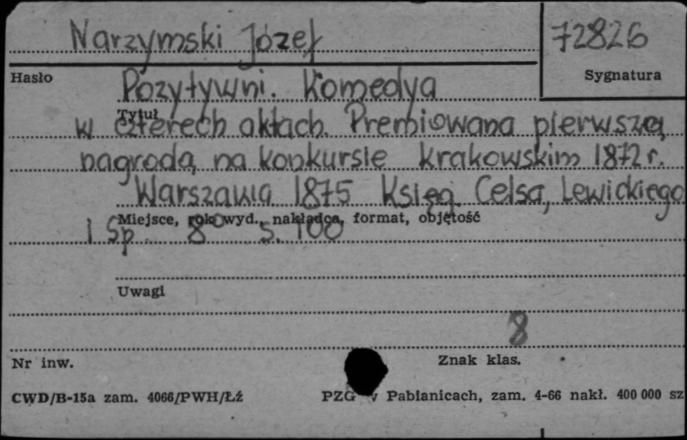 Narzymski Józef
72826
Hasło
Sygnatura
Pozytywni. Komedya
Tytuł
w czterech aktach. Premiowana pierwszą
nagrodą na konkursie krakowskim 1872 r.
Warszawa 1875 Księg. Celsa, Lewickiego
Miejsce, rok wyd., nakładca, format, objętość
i Sp. 8° s. 100
Uwagi
8
Nr inw.
Znak klas.
CWD/B-15a zam. 4066/PWH/Łź
PZG w Pabianicach, zam. 4-66 nakł. 400 000 sz